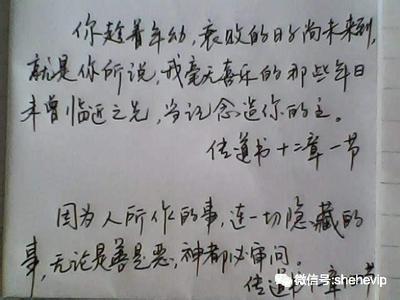 你趁着年幼,衰败的日子尚未来到,
就是你所说,我毫无喜乐的那些年日
未曾临近之先,当记念造你的主。
传道书十二章一节
因为人所作的事,连一切隐藏的
事,无论是善是恶,神都必审问。
传道 章 节
微信号:shehevip